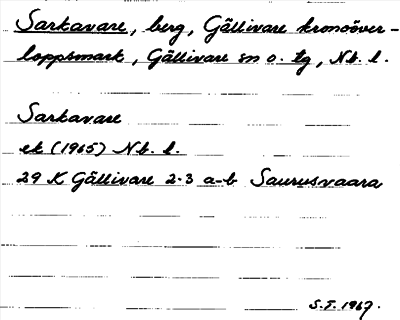 Sarkavare, berg, Gällivare kronoöver-
loppsmark, Gällivare sn o. tg, Nb. l.
Sarkavare
ek (1965) Nb. l.
29 K Gällivare 2-3 a-b Saurusvaara
S.F. 1967.